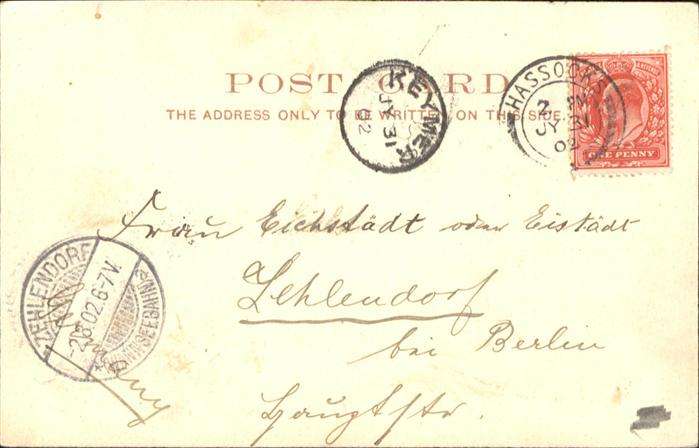 POST CARD
THE ADDRESS ONLY TO BE WRITTEN ON THIS SIDE.
KEYMER
JY 31
02
HASSOCKS
7 PM
JY 31
02
ONE PENNY
Frau Eichstädt oder Eistädt
Zehlendorf
bei Berlin
Hauptstr.
Germany
ZEHLENDORF
-2.8.02.6-7V.
(WANNSEEBAHN)